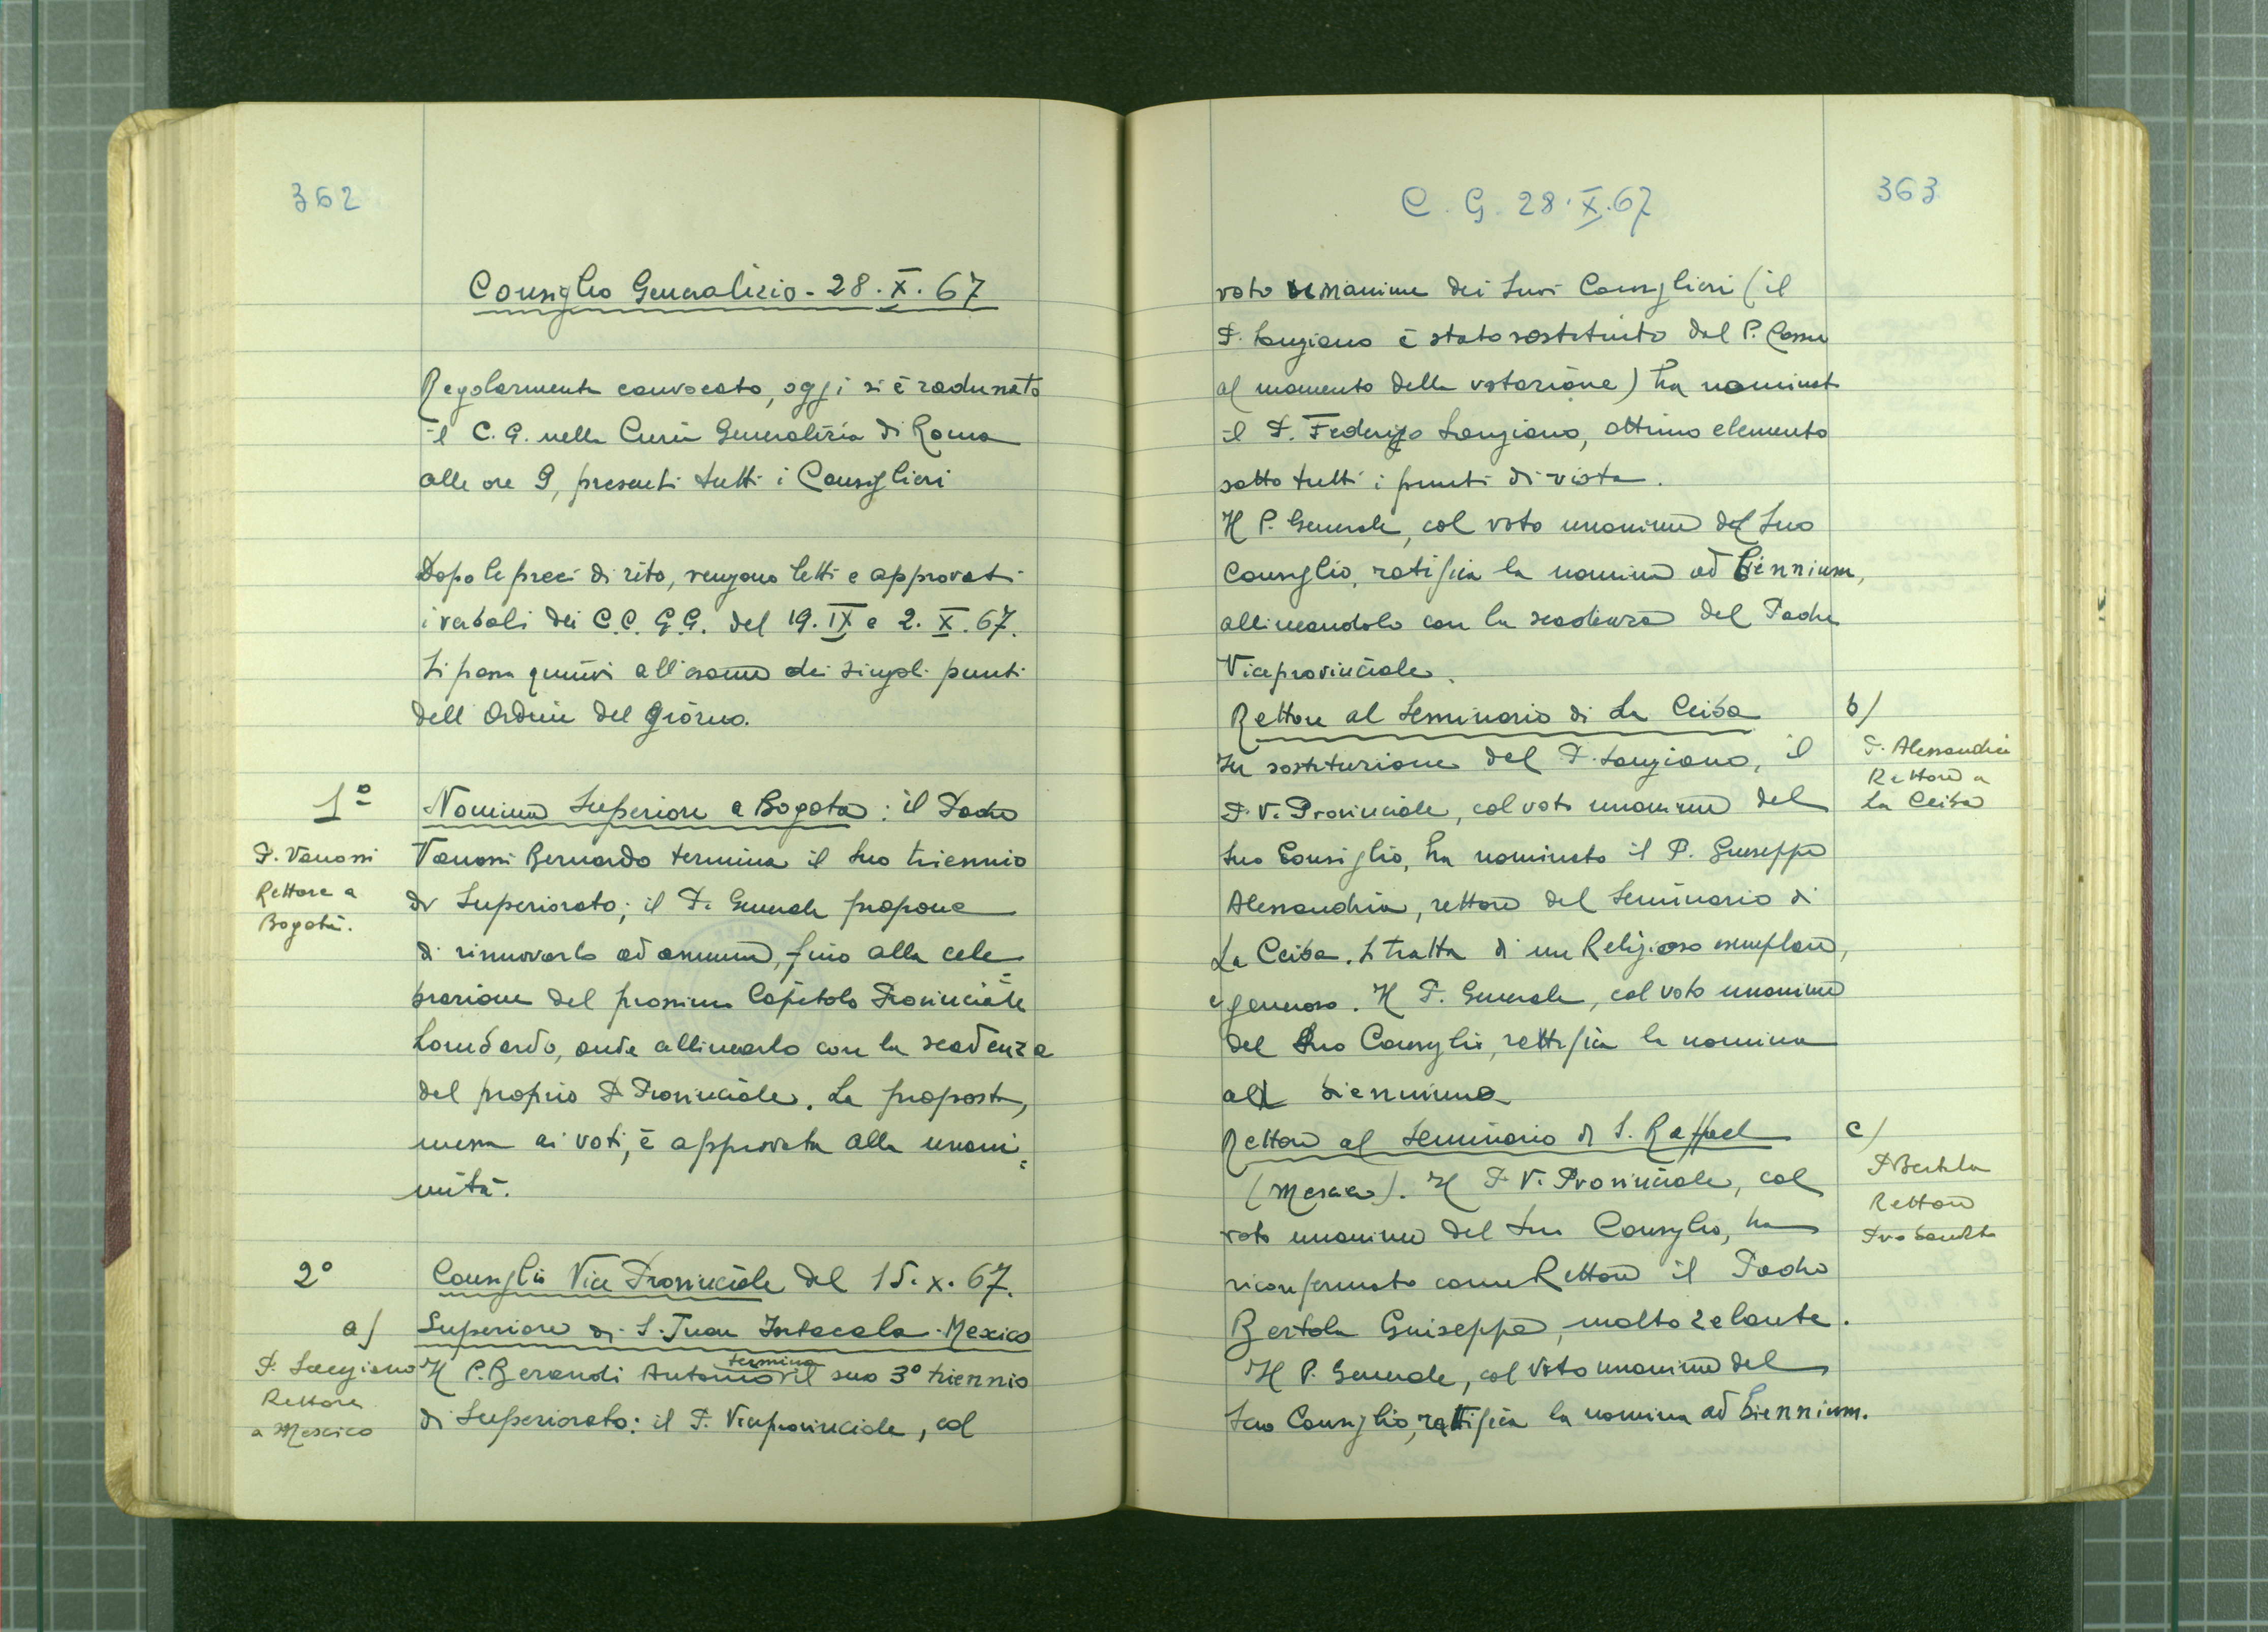 362
Consiglio Generalizio - 28. X. 67
Regolarmente convocato, oggi si è radunato
il C. G. nella Curia Generalizia di Roma
alle ore 9, presenti tutti i Consiglieri
Dopo le preci di rito, vengono letti e approvati
i verbali dei C.C. G.G. del 19. IX e 2. X. 67.
Si passa quindi all'esame dei singoli punti
dell'Ordine del Giorno.
1º Nomina Superiore a Bogota: il Padre
P. Vanossi
Rettore a
Bogotà.
Vanossi Bernardo termina il suo triennio
di Superiorato; il P. Generale propone
di rinnovarlo ad annum, fino alla cele=
brazione del prossimo Capitolo Provinciale
Lombardo, onde allinearlo con la scadenza
del proprio P. Provinciale. La proposta,
messa ai voti, è approvata alla unani=
mità.
2º Consiglio Vice Provinciale del 15. X. 67.
a) Superiore di S. Juan Ixtacala - Mexico
P. Sangiano
Rettore
a Mexico
Il P. Berandi Antonio termina il suo 3º triennio
di Superiorato: il P. Viceprovinciale, col
C. G. 28. X. 67
363
voto unanime dei suoi Consiglieri (il
P. Sangiano è stato sostituito dal P.
al momento della votazione) ha nominat
il P. Federigo Sangiano, ottimo elemento
sotto tutti i punti di vista.
Il P. Generale, col voto unanime del suo
Consiglio, ratifica la nomina ad biennium,
allineandolo con la scadenza del Padre
Viceprovinciale.
Rettore al Seminario di La Ceiba
b)
P. Alessandria
Rettore a
La Ceiba
In sostituzione del P. Sangiano, il
P. V. Provinciale, col voto unanime del
suo Consiglio, ha nominato il P. Giuseppe
Alessandria, rettore del Seminario di
La Ceiba. Si tratta di un Religioso esemplare,
e generoso. Il P. Generale, col voto unanime
del suo Consiglio, rettifica la nomina
ad biennium
Rettore al Seminario di S. Raffael
c)
P Bertola
Rettore
(Mexico). Il P. V. Provinciale, col
voto unanime del suo Consiglio, ha
riconfermato come Rettore il Padre
Bertola Guiseppe, molto zelante.
Il P. Generale, col voto unanime del
suo Consiglio, rattifica la nomina ad biennium.